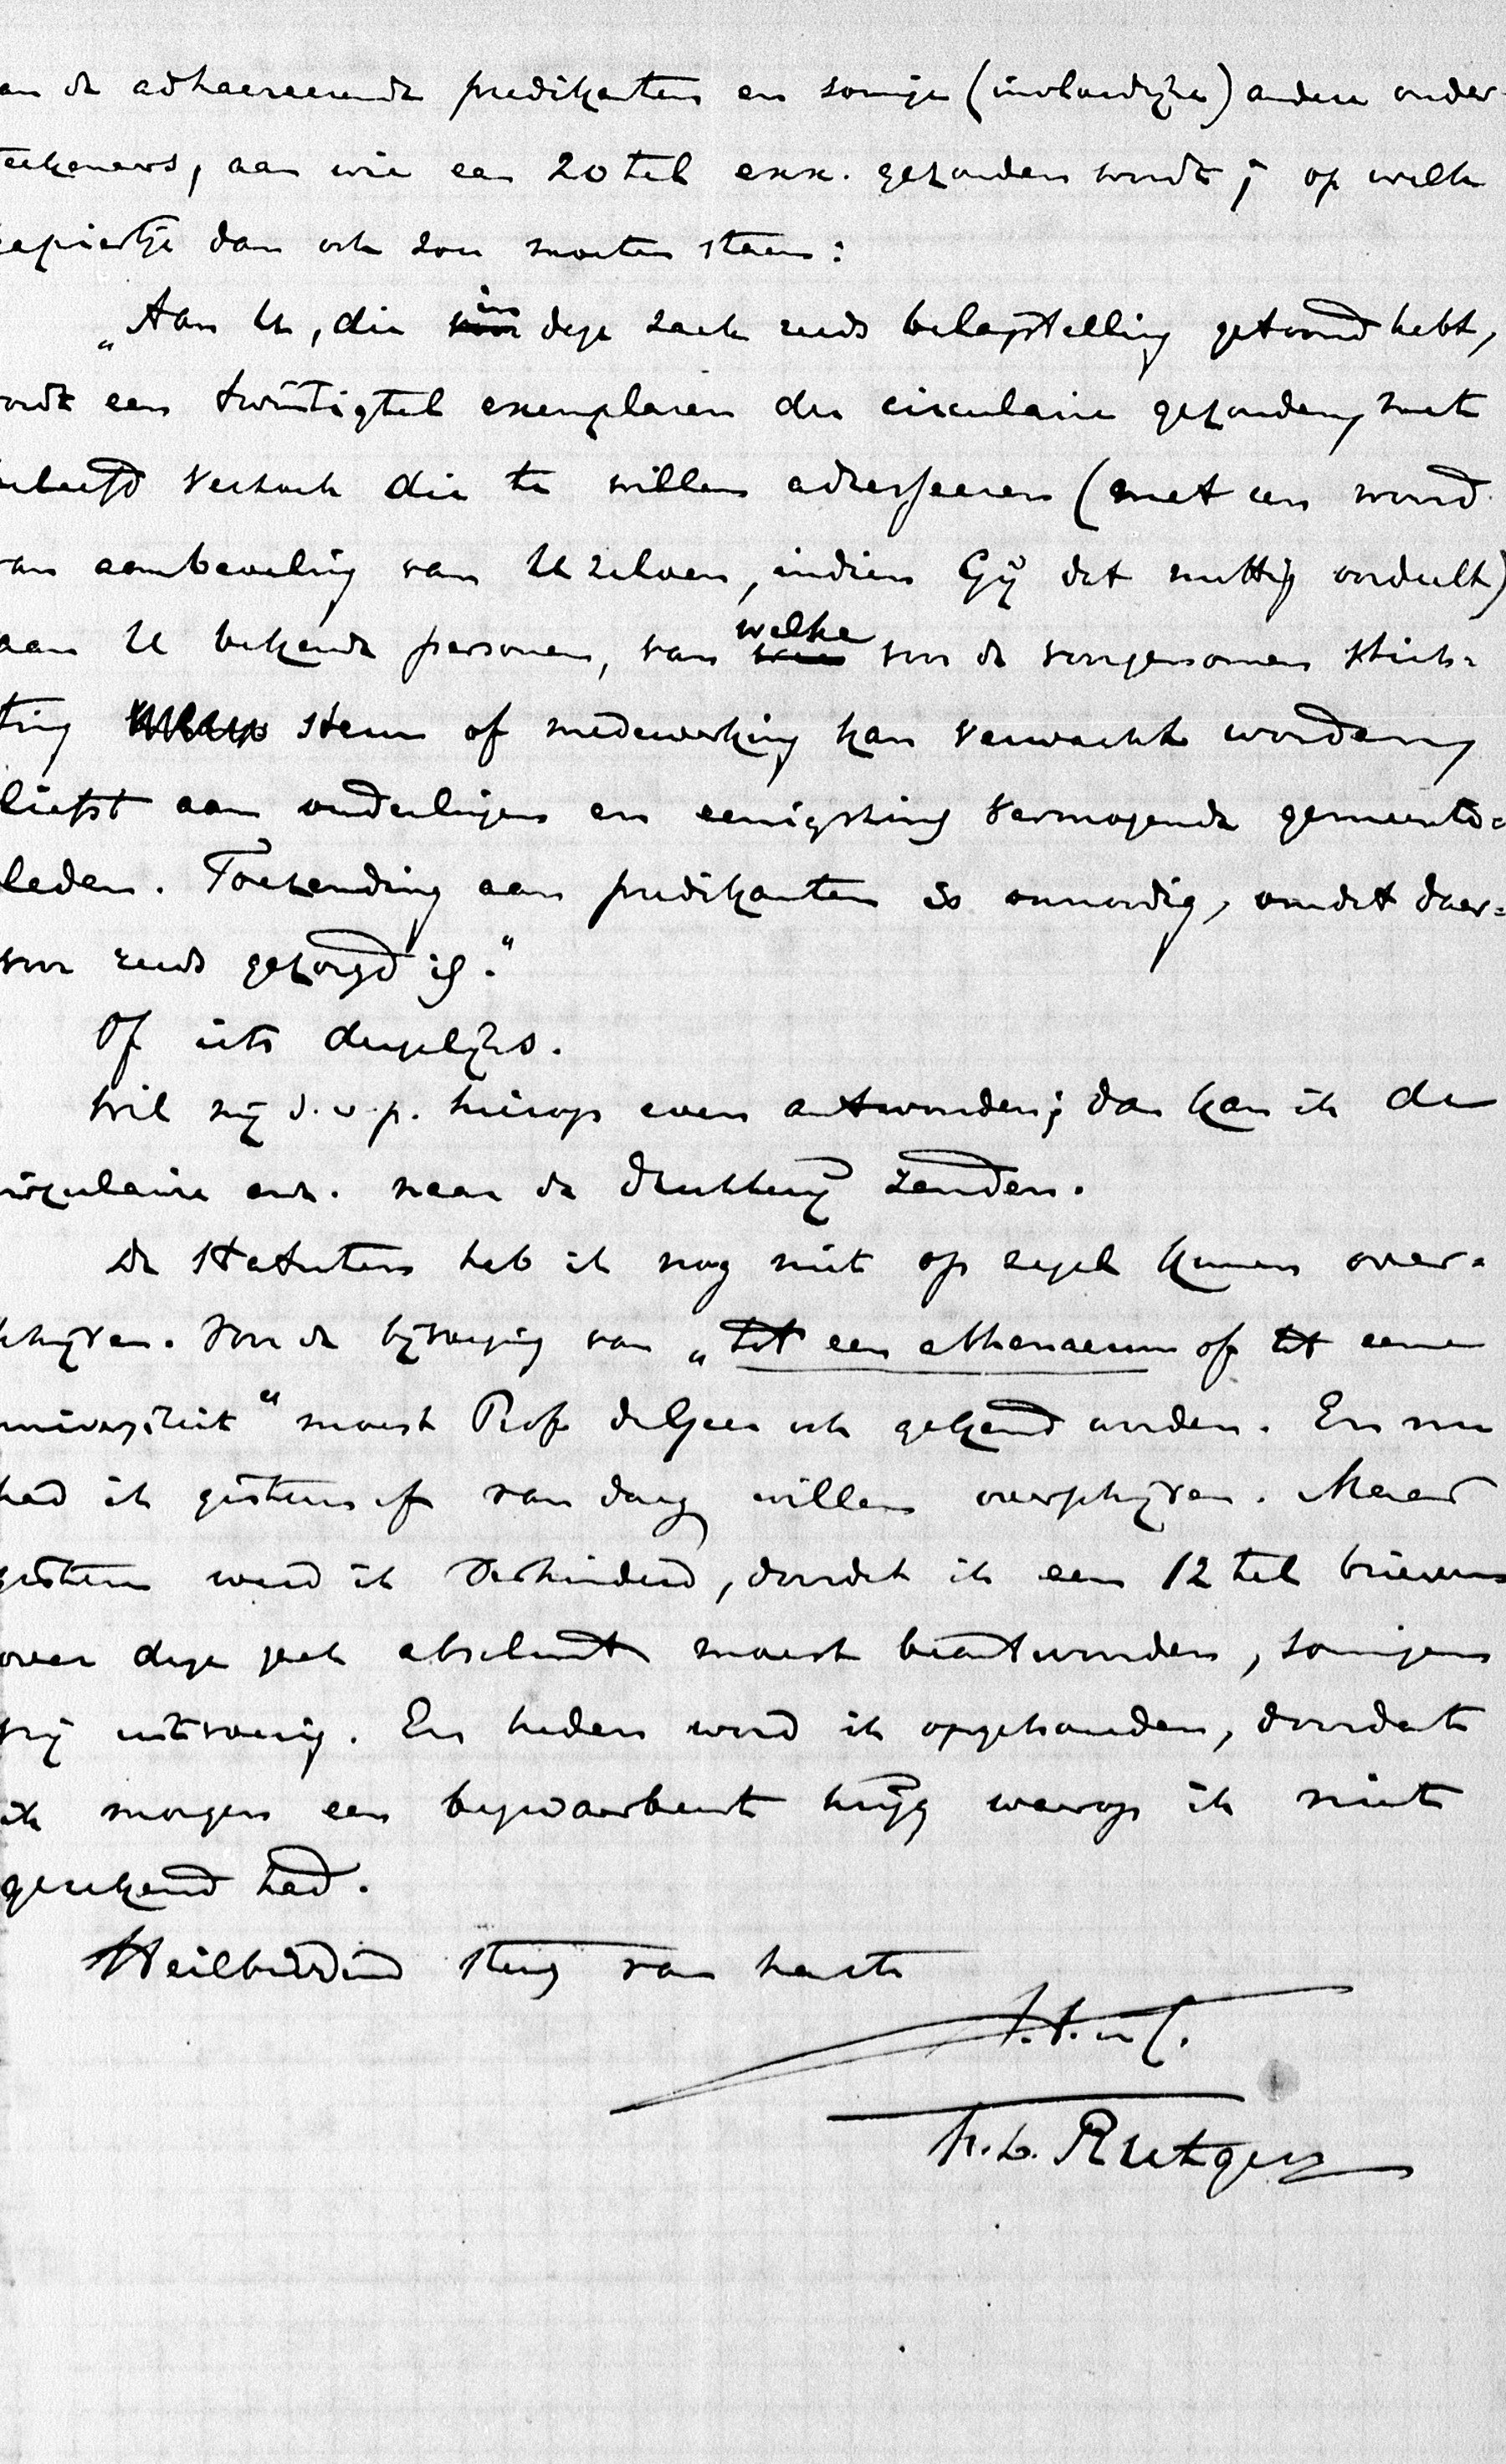 an de adhaereerende predikanten en somige (invloedrijke) andere onder-
teekenaars, aan wie een 20tal exx. gezonden wordt; op welk
papiertje dan ook zou moeten staan:
„Aan U, die in deze zaak reeds belangstelling getoond hebt,
wordt een twintigtal exemplaren der circulaire gezonden, met
beleefd verzoek die te willen adresseeren (met een woord
van aanbeveling van U zelven, indien Gij dat nuttig oordeelt)
aan U bekende personen, van welke voor de voorgenomen stich-
ting steun of medewerking kan verwacht worden,
liefst aan ouderlingen en eenigszins vermogende gemeente-
leden. Toezending aan predikanten is onnoodig, omdat daar-
voor reeds gezorgd is."
Of iets dergelijks.
Wil mij s.v.p. hierop even antwoorden; dan kan ik de
circulaire enz. naar de drukkerij zenden.
De Statuten heb ik nog niet op zegel kunnen over-
schrijven. Voor de bijvoeging van „tot een athenaeum of tot eene
universiteit" moest Prof de Geer ook gekend worden. En nu
had ik gisteren of van daag willen overschrijven. Maar
gisteren werd ik verhinderd, doordat ik een 12tal brieven
over deze zaak absoluut moest beantwoorden, somigen
vrij uitvoerig. En heden word ik opgehouden, doordat
ik morgen een bijwaarbeurt krijg waarop ik niet
gerekend had.
Heilbiddend steeds van harte
t.t. in C.
F. L. Rutgers